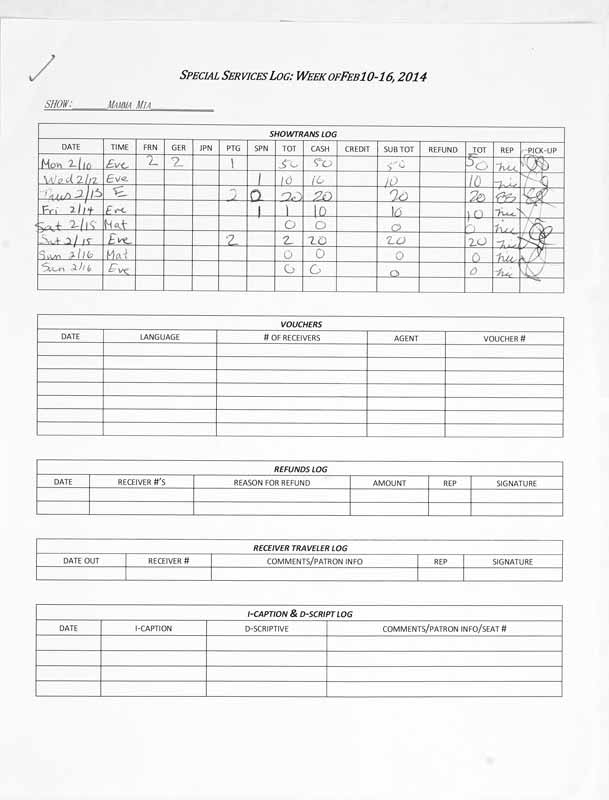 SPECIAL SERVICES LOG: WEEK OFFEB10-16, 2014
SHOW: MAMMA MIA
SHOWTRANS LOG
DATE TIME FRN GER JPN PTG SPN TOT CASH CREDIT SUB TOT REFUND TOT REP PICK-UP
Mon 2/10 Eve 2 2 1 50 50 50 50
Wed 2/12 Eve 1 10 10 10 10
Thus 2/13 E 2 0 20 20 20 20
Fri 2/14 Eve 1 1 10 10 10
Sat 2/15 Mat 0 0 0 0
Sat 2/15 Eve 2 2 20 20 20
Sun 2/16 Mat 0 0 0 0
Sun 2/16 Eve 0 0 0 0
VOUCHERS
DATE LANGUAGE # OF RECEIVERS AGENT VOUCHER #
REFUNDS LOG
DATE RECEIVER #'S REASON FOR REFUND AMOUNT REP SIGNATURE
RECEIVER TRAVELER LOG
DATE OUT RECEIVER # COMMENTS/PATRON INFO REP SIGNATURE
I-CAPTION & D-SCRIPT LOG
DATE I-CAPTION D-SCRIPTIVE COMMENTS/PATRON INFO/SEAT #